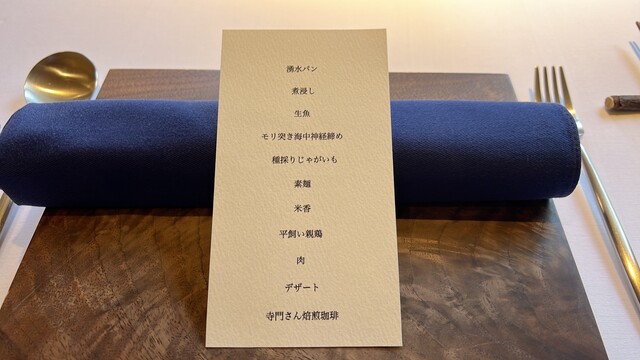 湧水パン
煮浸し
生魚
モリ突き海中神経締め
種採りじゃがいも
素麺
米香
平飼い親鶏
肉
デザート
寺門さん焙煎珈琲